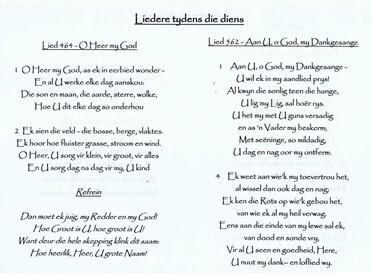 Liedere tydens die diens
Lied 464 - O Heer my God
1 O Heer my God, as ek in eerbied wonder -
En al U werke elke dag aanskou:
Die son en maan, die aarde, sterre, wolke,
Hoe U dit elke dag so onderhou
2 Ek sien die veld - die bosse, berge, vlaktes.
Ek hoor hoe fluister grasse, stroom en wind.
O Heer, U sorg vir klein, vir groot, vir alles
En U sorg dag na dag vir my, U kind
Refrein
Dan moet ek juig, my Redder en my God!
Hoe Groot is U, hoe groot is U!
Want deur die hele skepping klink dit saam:
Hoe heerlik, Heer, U grote Naam!
Lied 562 - Aan U, o God, my Dankgesange
1 Aan U, o God, my dankgesange -
U wil ek in my aandlied prys!
Al kwyn die sonlig teen die hange,
U lig my Lig, sal hoër rys.
U het my met U guns versadig
en as 'n Vader my beskerm;
Met seëninge, so mildadig,
U dag en nag oor my ontferm.
4 Ek weet aan wie'k my toevertrou het,
al wissel dan ook dag en nag;
Ek ken die Rots op wie'k gebou het,
van wie ek al my heil verwag.
Eens aan die einde van my lewe sal ek,
van dood en sonde vry,
Vir al U seën en goedheid, Here,
U nuut my dank- en loflied wy.